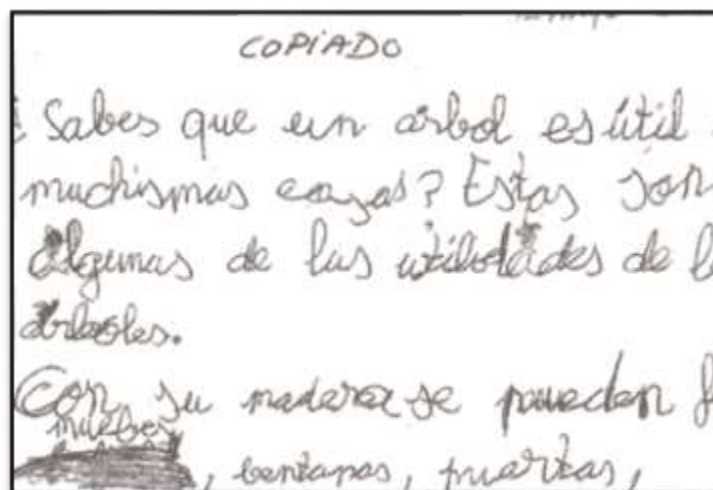 COPIADO
¿Sabes que un arbol es útil
muchismas cosas? Estas son
algunas de las utilidades de l
arboles.
Con su madera se pueden f
muebles
, bentanas, puartas,